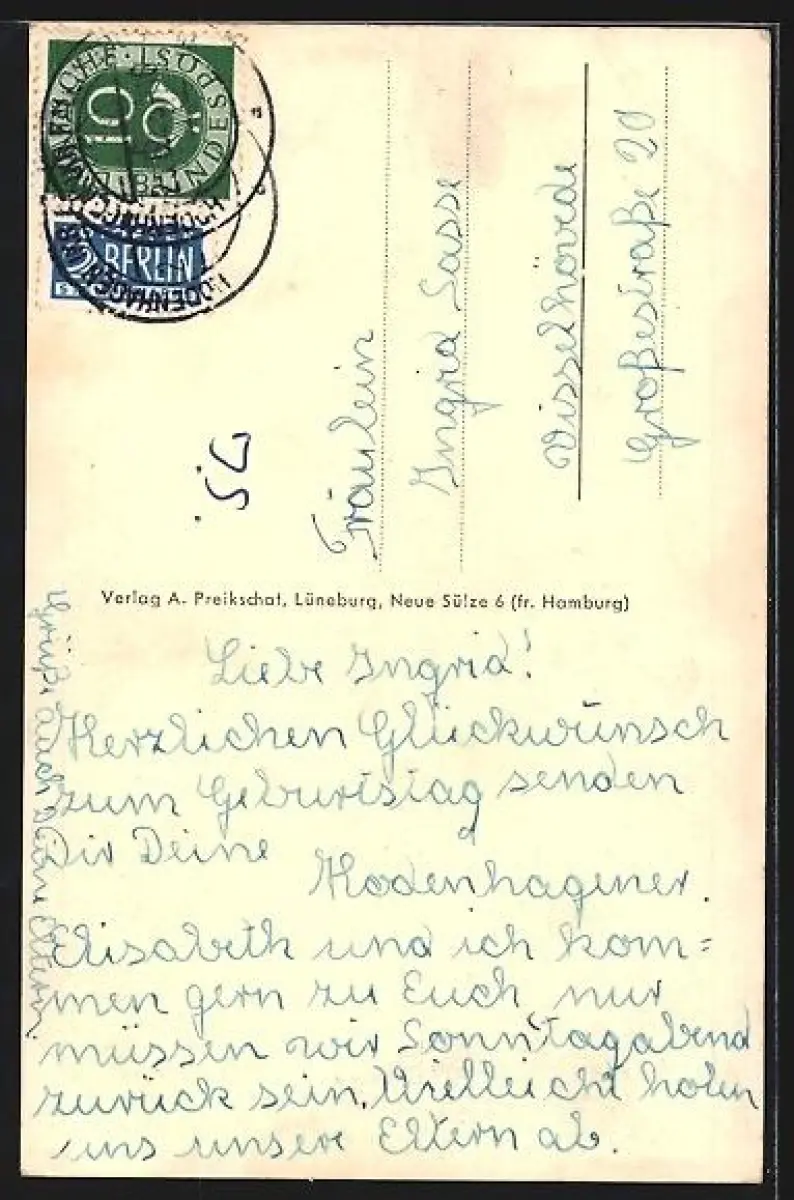 DEUTSCHE BUNDESPOST
10
BERLIN
HODENHAGEN
Fräulein
Ingrid Sasse
Visselhövede
Großestraße 20
Verlag A. Preikschat, Lüneburg, Neue Sülze 6 (fr. Hamburg)
Liebe Ingrid!
Herzlichen Glückwünsch
zum Geburtstag senden
Dir Deine
Hodenhagener.
Elisabeth und ich kom=
men gern zu Euch nur
müssen wir Sonntagabend
zurück sein. Vielleicht holen
uns unsere Eltern ab.
Grüße auch Deine Eltern